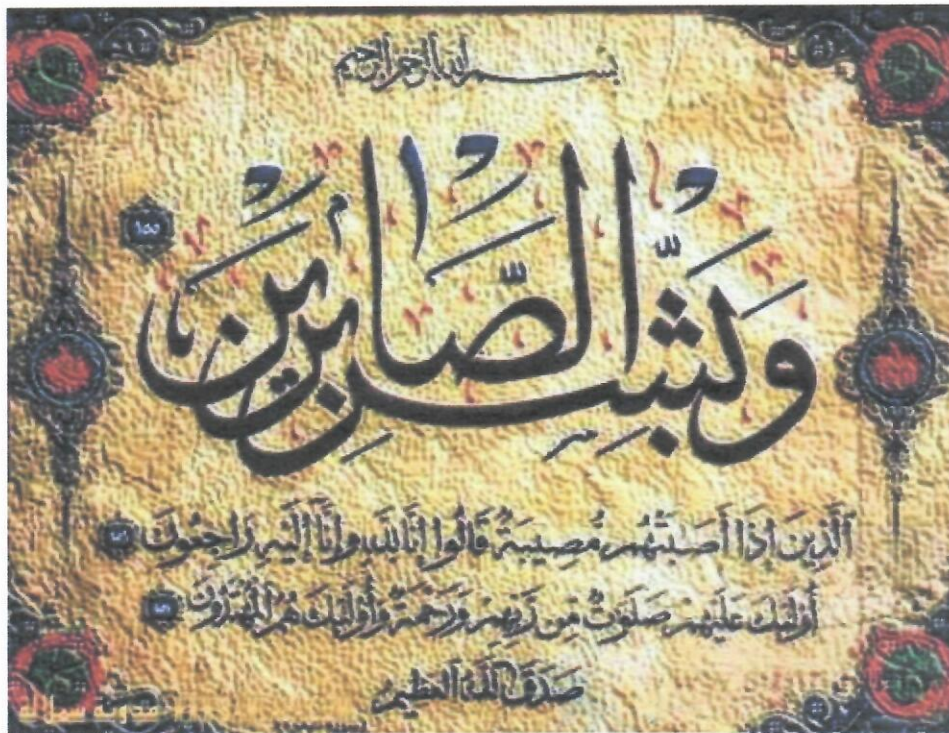 بسم الله الرحمن الرحيم
وبشر الصابرين ١٥٥
ٱلَّذِينَ إِذَا أَصَٰبَتْهُم مُّصِيبَةٌ قَالُوا إِنَّا لِلَّهِ وَإِنَّا إِلَيْهِ رَاجِعُونَ
أُولَٰئِكَ عَلَيْهِمْ صَلَوَٰتٌ مِّن رَّبِّهِمْ وَرَحْمَةٌ وَأُولَٰئِكَ هُمُ الْمُهْتَدُونَ
صَدَقَ اللَّهُ الْعَظِيمُ